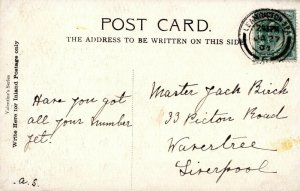 POST CARD.
THE ADDRESS TO BE WRITTEN ON THIS SIDE
Valentine's Series
Write Here (or Inland Postage only
Have you got
all your number
yet!
.a.S.
Master Jack Birch
33 Picton Road
Wavertree
Liverpool